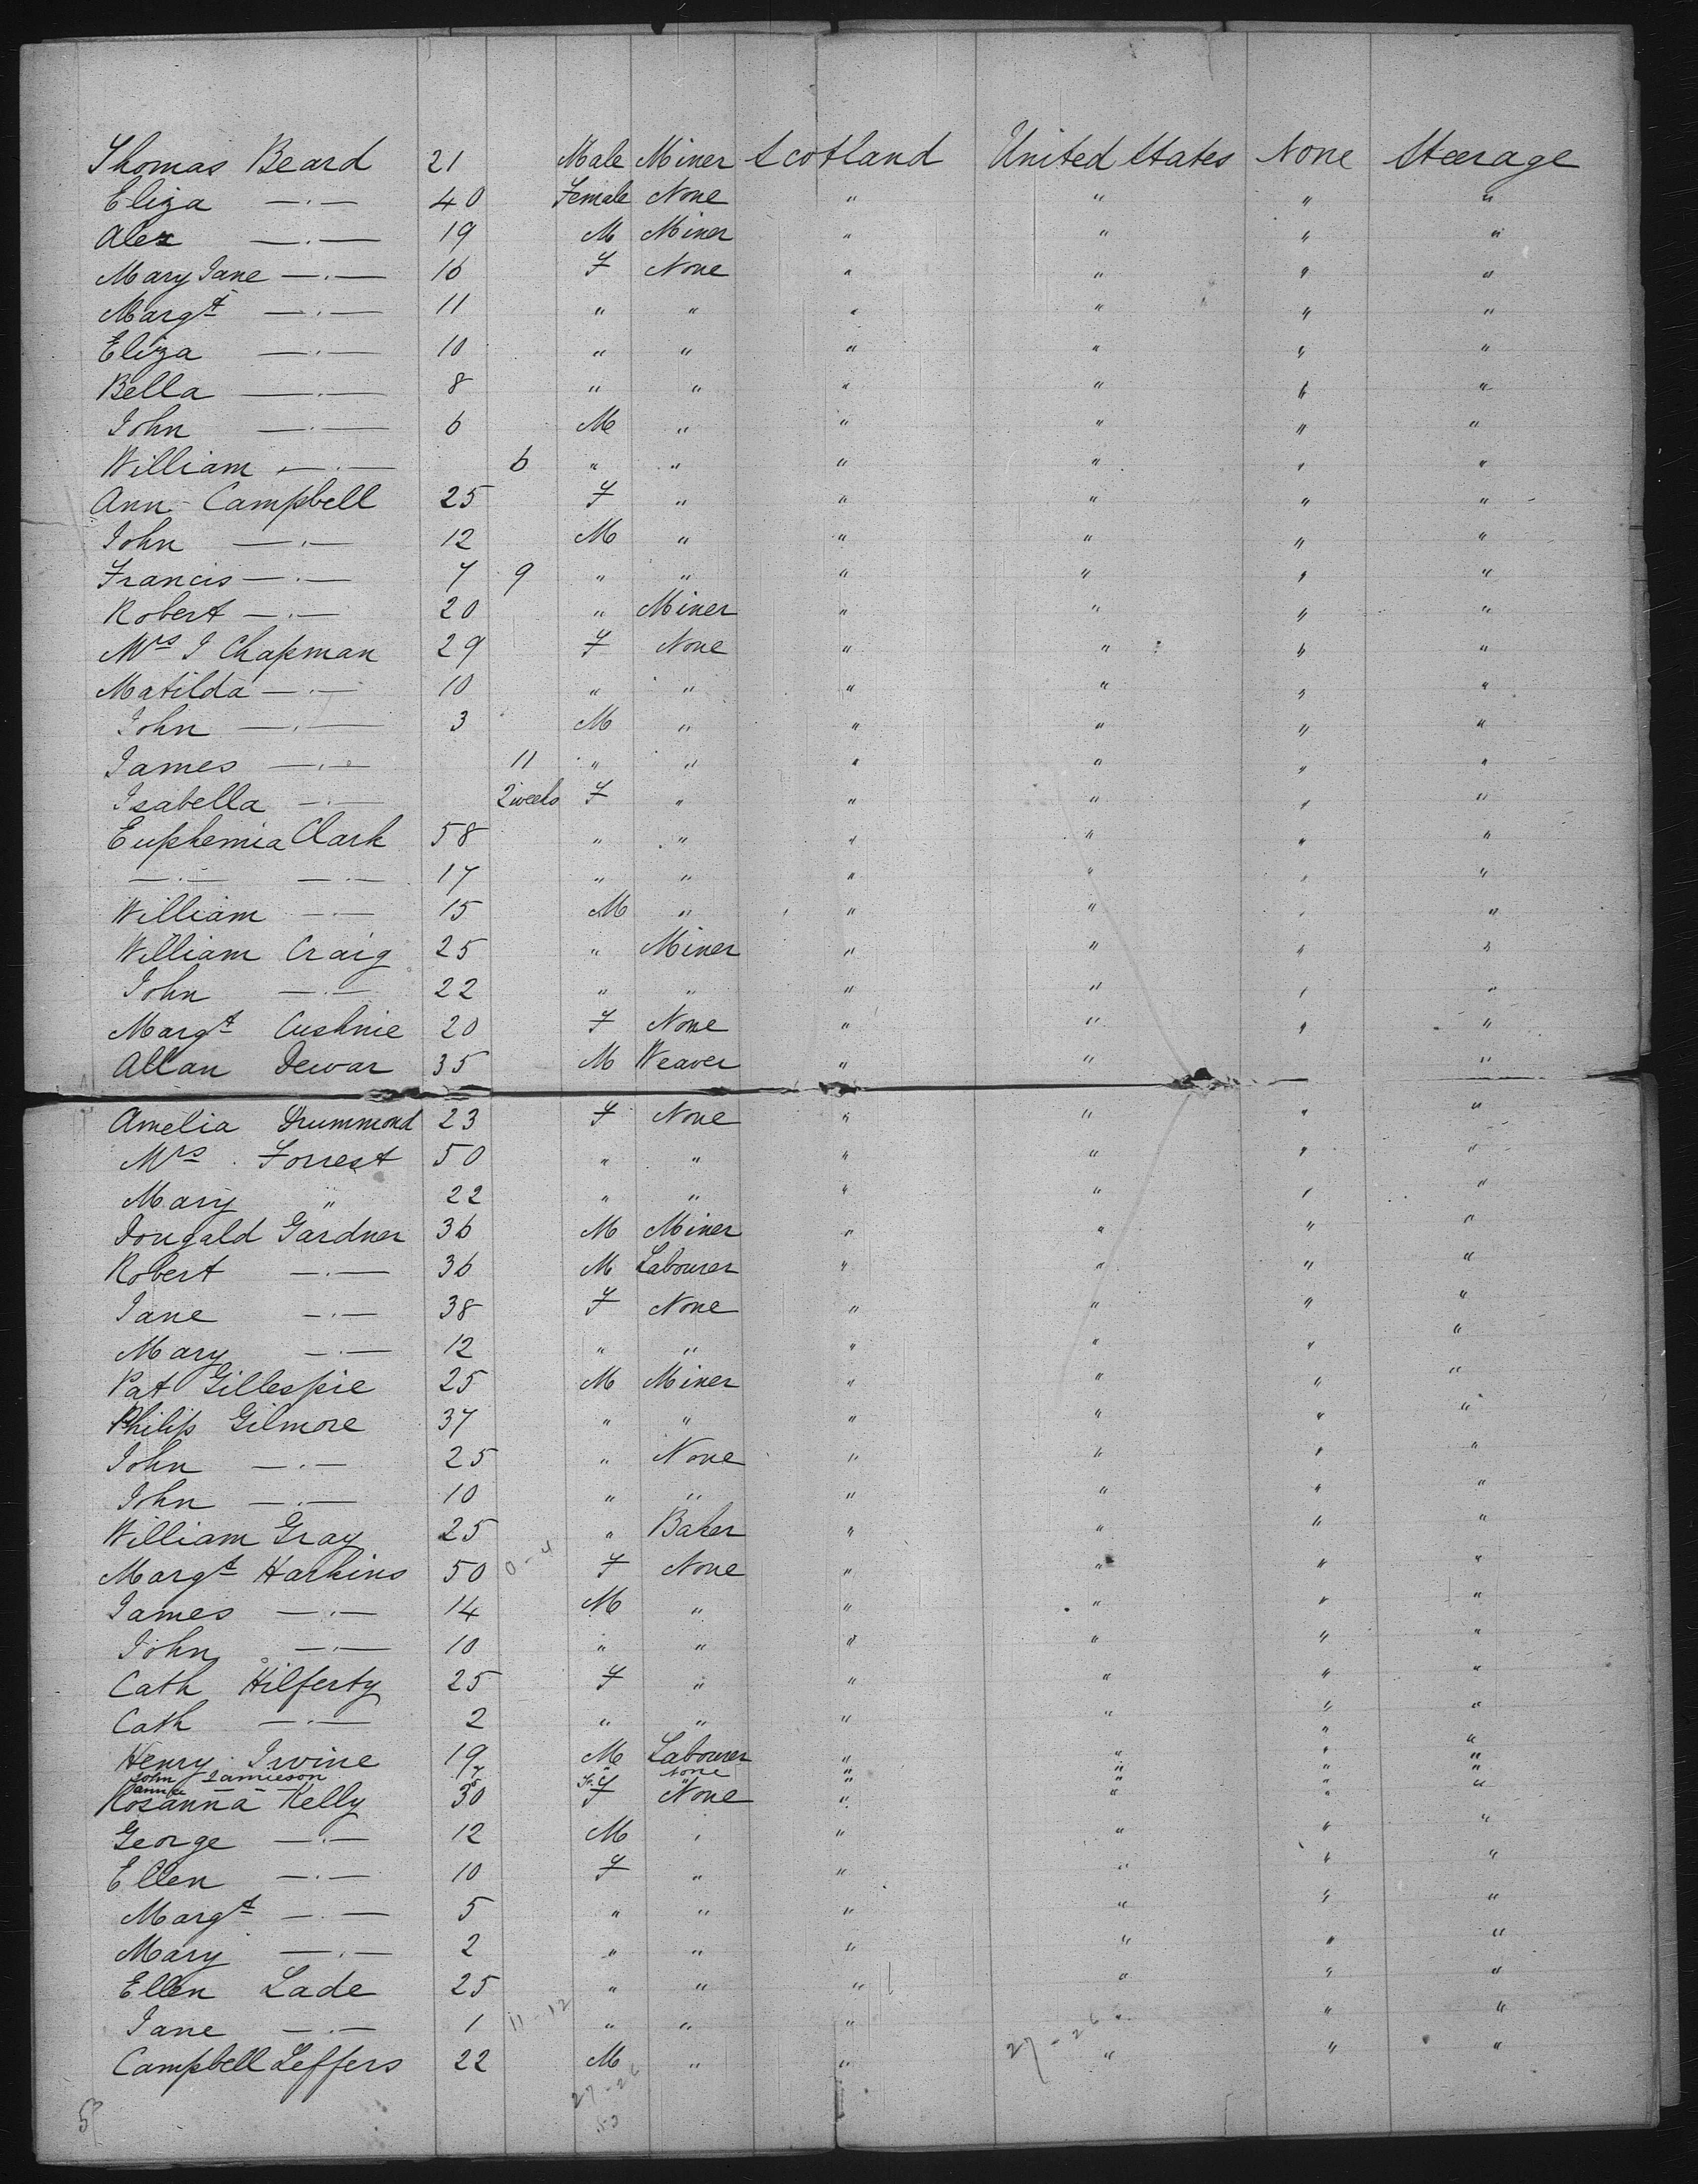 Thomas Beard 21 Male Miner Scotland United States None Steerage
Eliza —.— 40 Female None " " " "
Alex —.— 19 M Miner " " " "
Mary Jane —.— 16 F None " " " "
Margt —.— 11 " " " " " "
Eliza —.— 10 " " " " " "
Bella —.— 8 " " " " " "
John —.— 6 M " " " " "
William —.— 6 " " " " " "
Ann Campbell 25 F " " " " "
John —.— 12 M " " " " "
Francis —.— 7 9 " " " " " "
Robert —.— 20 " Miner " " " "
Mrs J Chapman 29 F None " " " "
Matilda —.— 10 " " " " " "
John —.— 3 M " " " " "
James —.— 11 " " " " " "
Isabella —.— 2 weeks F " " " " "
Euphemia Clark 58 " " " " " "
—.— —.— 17 " " " " " "
William —.— 15 M " " " " "
William Craig 25 " Miner " " " "
John —.— 22 " " " " " "
Margt Cushnie 20 F None " " " "
Allan Dewar 35 M Weaver " " " "
Amelia Drummond 23 F None " " " "
Mrs Forrest 50 " " " " " "
Mary " 22 " " " " " "
Dougald Gardner 36 M Miner " " " "
Robert —.— 36 M Labourer " " " "
Jane —.— 38 F None " " " "
Mary —.— 12 " " " " " "
Pat Gillespie 25 M Miner " " " "
Philip Gilmore 37 " " " " " "
John —.— 25 " None " " " "
John —.— 10 " " " " " "
William Gray 25 " Baker " " " "
Margt Harkins 50 0-4 F None " " " "
James —.— 14 M " " " " "
John —.— 10 " " " " " "
Cath Hilferty 25 F " " " " "
Cath —.— 2 " " " " " "
Henry Irvine 19 M Labourer " " " "
John Jamieson 7 " None " " " "
Annie — — 5 " " " " "
Rosanna Kelly 30 F None " " " "
George —.— 12 M " " " " "
Ellen —.— 10 F " " " " "
Margt —.— 5 " " " " " "
Mary —.— 2 " " " " " "
Ellen Lade 25 " " " " " "
Jane —.— 1 11-12 " " " 27-26 " " "
Campbell Leffers 22 M " " " " "
27-26
53
53